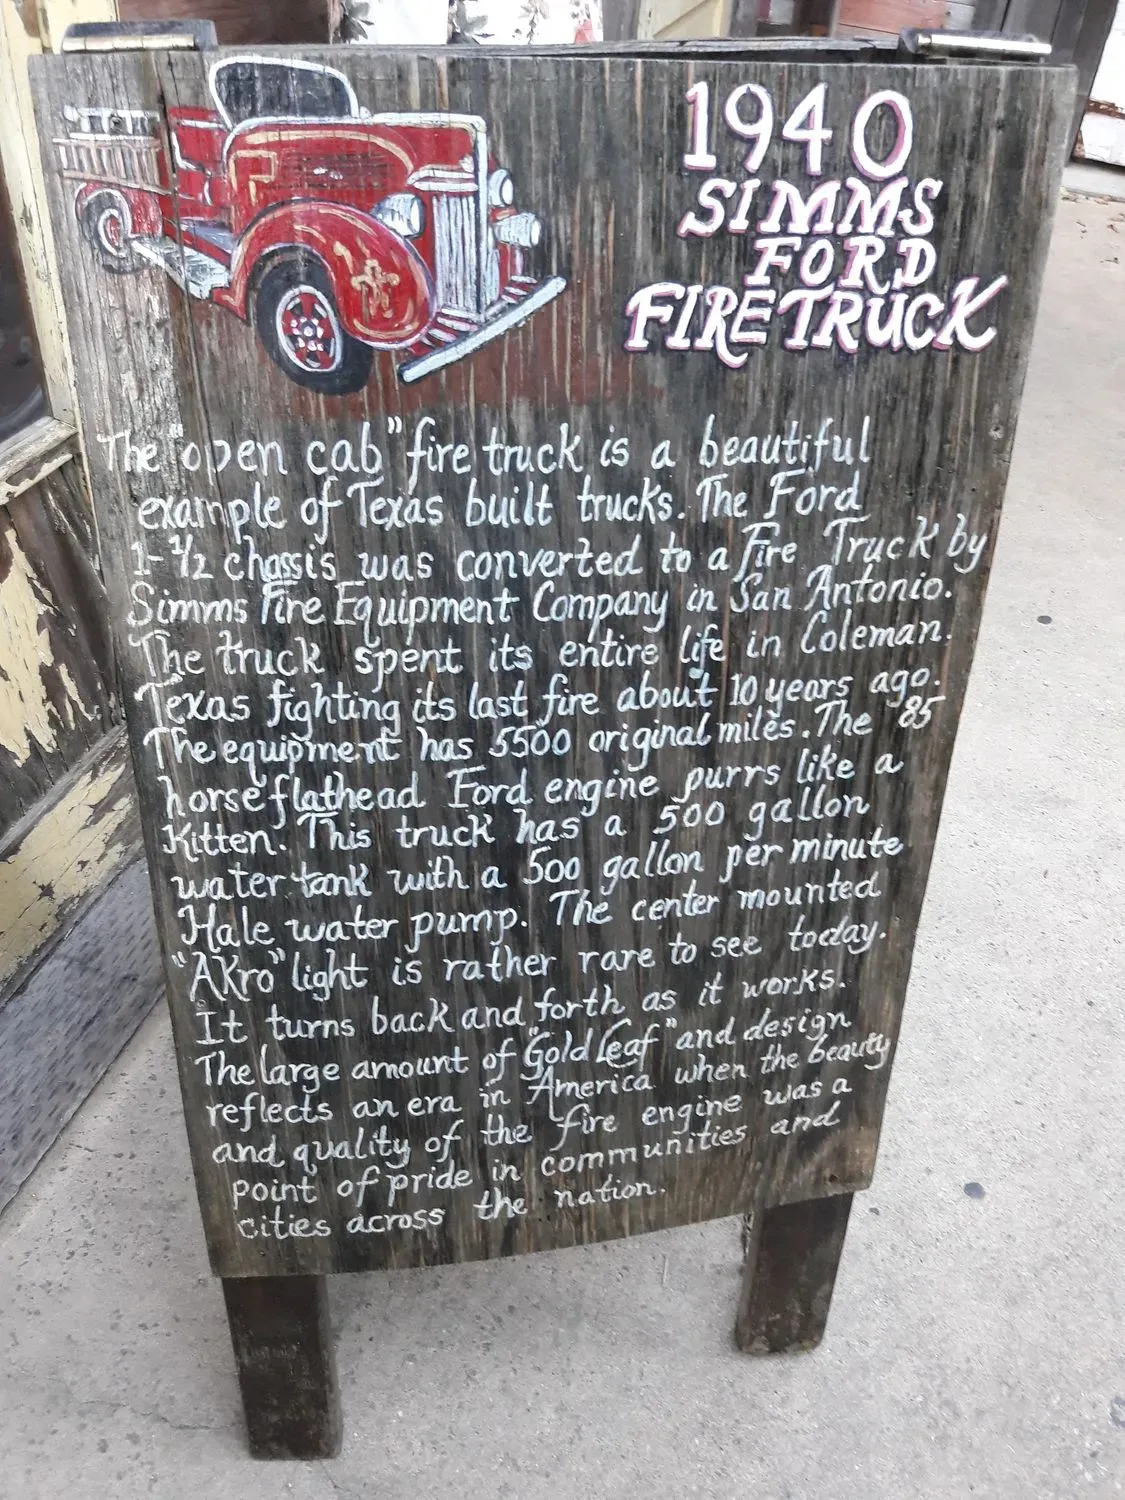 1940
SIMMS
FORD
FIRETRUCK
The "open cab" fire truck is a beautiful
example of Texas built trucks. The Ford
1-1/2 chassis was converted to a Fire Truck by
Simms Fire Equipment Company in San Antonio.
The truck spent its entire life in Coleman.
Texas fighting its last fire about 10 years ago.
The equipment has 5500 original miles. The '85
horse flathead Ford engine purrs like a
Kitten. This truck has a 500 gallon
water tank with a 500 gallon per minute
Hale water pump. The center mounted
"AKro" light is rather rare to see today.
It turns back and forth as it works.
The large amount of "Gold Leaf" and design
reflects an era in America when the beauty
and quality of the fire engine was a
point of pride in communities and
cities across the nation.